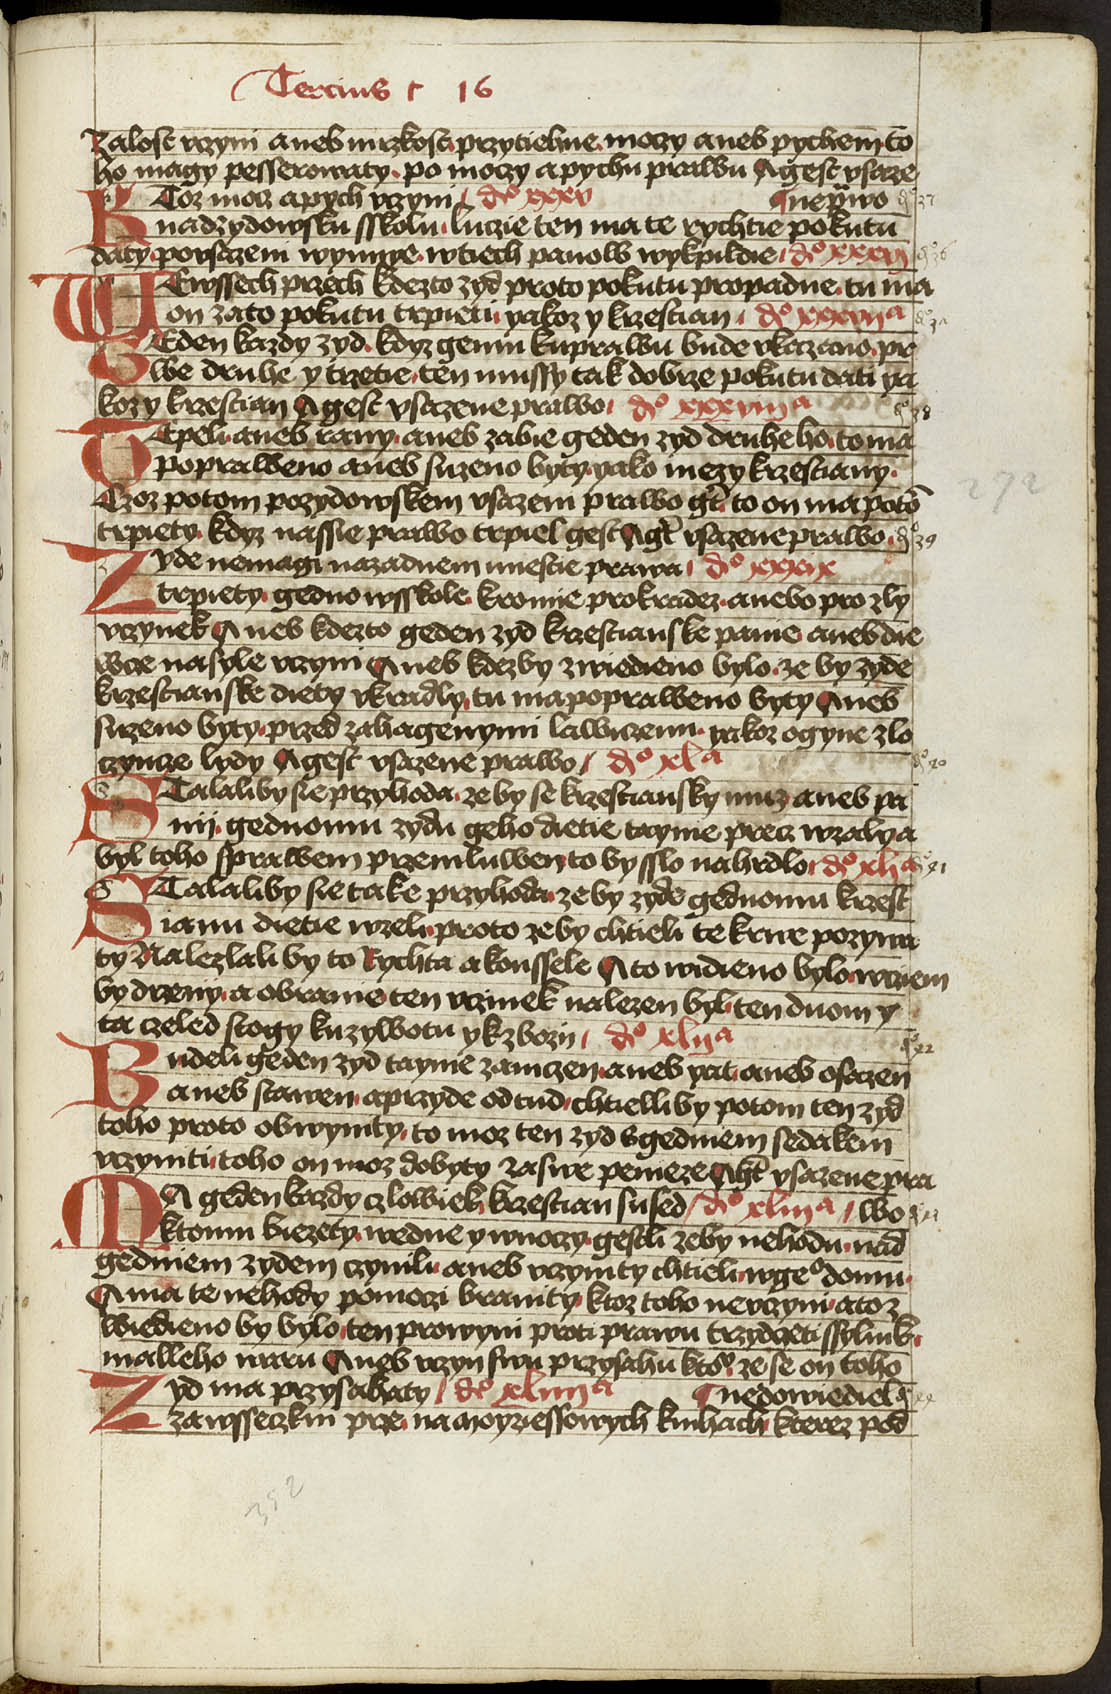 Tercius c 16
zalost vczyni aneb mrzkost przytielnie moczy aneb pychem to
ho magy pesserowaty po moczy a pychu prawu A gest vsaze
Ktoz mocz a pych vczyni d͞o xxxv ne p͞wo
nad zydowsku sskolu lucze ten ma te rychtie pokutu
daty powsazeni wymye wtiech panow wykpildie d͞o xxxvi
WEwssech przech kdezto zyd proto pokutu propadne tu ma
on zato pokutu trpieti yakoz y krzestian d͞o xxxvii a
GEden kazdy zyd kdyz gemu kuprawu bude vkazano pr
we druhe y trzetie ten mussy tak dobrze pokutu dati ya
koz y krzestian A gest vsazene prawo d͞o xxxviii a
TEpeli aneb rany aneb zabie geden zyd druheho to ma
popraweno aneb suzeno byty yako mezy krzestiany
Czoz potom pozydowskem vsazeni prawo g͞t to on ma poto͞
trpiety kdyz nassie prawo trpiel gest A g͞t vsazene prawo
Zyde nemagi nazadnem miestie prawa d͞o xxxix
trpiety gedno wsskole kromie prokradez anebo pro zly
vczynek Aneb kdezto geden zyd krzestianske panie aneb die
wcze nasyle vczyni Aneb kdezby zwiedieno bylo ze by zyde
krzestianske diety vkradly tu ma popraweno byty Aneb
suzeno byty przed zahagenymi lawiczemi yakoz o gyne zlo
czyncze lydy A gest vsazene prawo d͞o xl a
Stalaliby sie przyhoda ze by se krzestiansky muz aneb pa
nij gednomu zydu geho dietie taynie precz wzaly a
byl toho sprawem przemluwen to by sslo nahrdlo d͞o xli a
Stalaliby sie take przyhoda ze by zyde gednomu krzest
ianu dietie wzeli proto ze by chtieli te krwe pozywa
ty Nalezlaliby to Rychta a konssele A to widieno bylo wtiem
by drzeny a obranie ten vczinek nalezen byl ten duom y
ta czeled stogy ku zywotu y k zbozii d͞o xlii a
Budeli geden zyd taynie zamczen aneb yat aneb osazen
aneb stawen a przyde odtud chtielliby potom ten zyd
toho proto obwynity to moz ten zyd s gedniem sedakem
vczynti toho on moz dobyty zaswe penieze A g͞t vsazene pra
MA geden kazdy czlowiek krzestian sused d͞o xliii a wo
ktomu biezety wedne y wnoczy gestli zeby nehodu nad
gedniem zydem czynili aneb vczynity chtieli wge͞o domu
A ma te nehody pomoczi braniti ktoz toho nevczyni a toz
wiedieno by bylo ten prowyni proti prawu trzydczeti ssylink
malleho waru Aneb vczyn swu przysahu kto͞ ze se on toho
Zyd ma przysahaty d͞o xliiii a nedowiediel
zawsseczku prze na moyziessowych knihach kterez pod
272
352